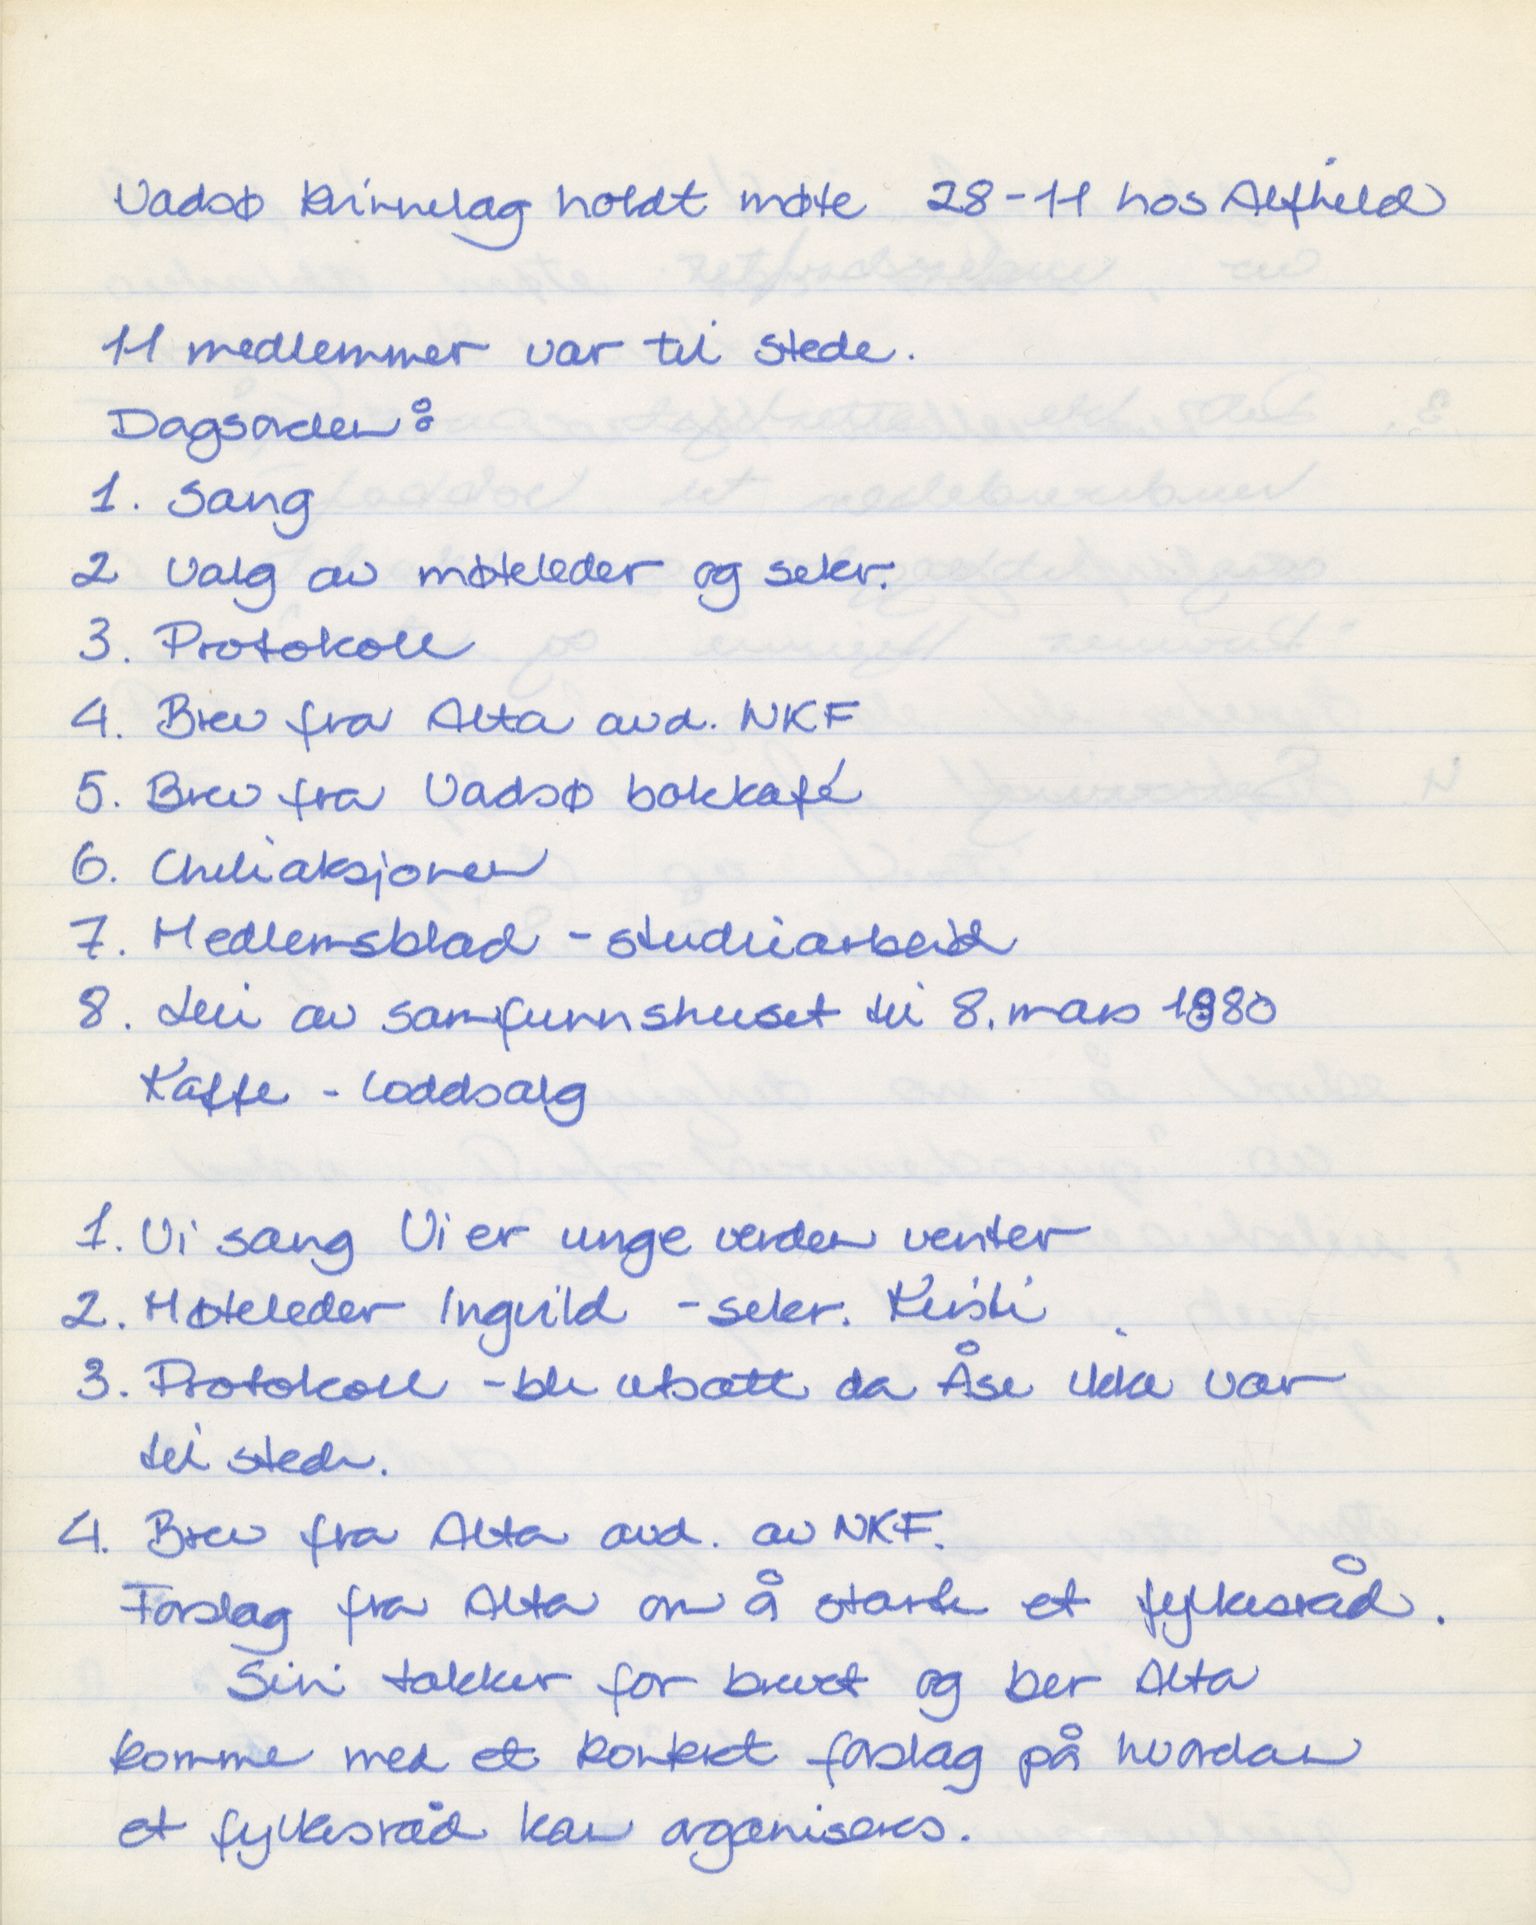 Vadsø kvinnelag holdt møte 28-11 hos Alfhild
11 medlemmer var til stede.
Dagsorden:
1. Sang
2 Valg av møteleder og sekr.
3. Protokoll
4. Brev fra Alta avd. NKF
5. Brev fra Vadsø bokkafé
6. Chileaksjonen
7. Medlemsblad - studiearbeid
8. Leie av samfunnshuset til 8. mars 1980
Kaffe - loddsalg
1. Vi sang Vi er unge verden venter
2. Møteleder Ingvild - sekr. Kirsti
3. Protokoll - ble utsatt da Åse ikke var
til stede.
4. Brev fra Alta avd. av NKF.
Forslag fra Alta om å starte et fylkesråd.
Siri takker for brevet og ber Alta
komme med et konkret forslag på hvordan
et fylkesråd kan organiseres.